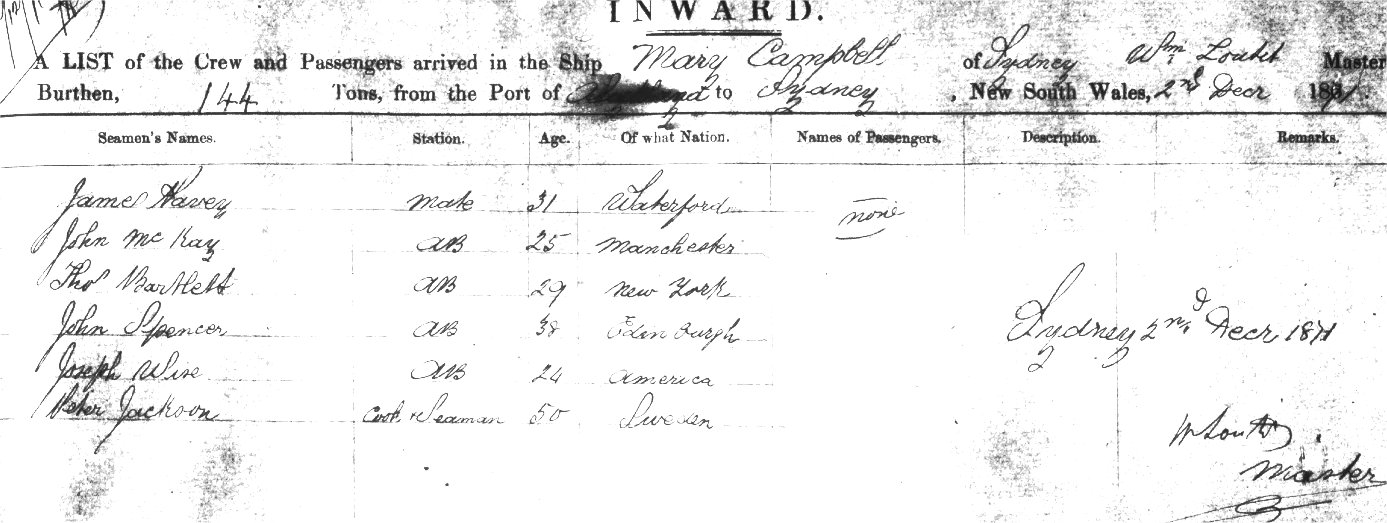 INWARD.
A LIST of the Crew and Passengers arrived in the Ship Mary Campbell of Sydney Wm Loutit Master
Burthen, 144 Tons, from the Port of to Sydney, New South Wales, 2nd Decr 1871.
Seamen's Names. Station. Age. Of what Nation. Names of Passengers. Description. Remarks.
James Havey Mate 31 Waterford none
John McKay AB 25 Manchester
Thos Bartlett AB 29 New York
John Spencer AB 38 Edinburgh
Sydney 2nd Decr 1871
Joseph Wise AB 24 America
Peter Jackson Cook & Seaman 50 Sweden
Master